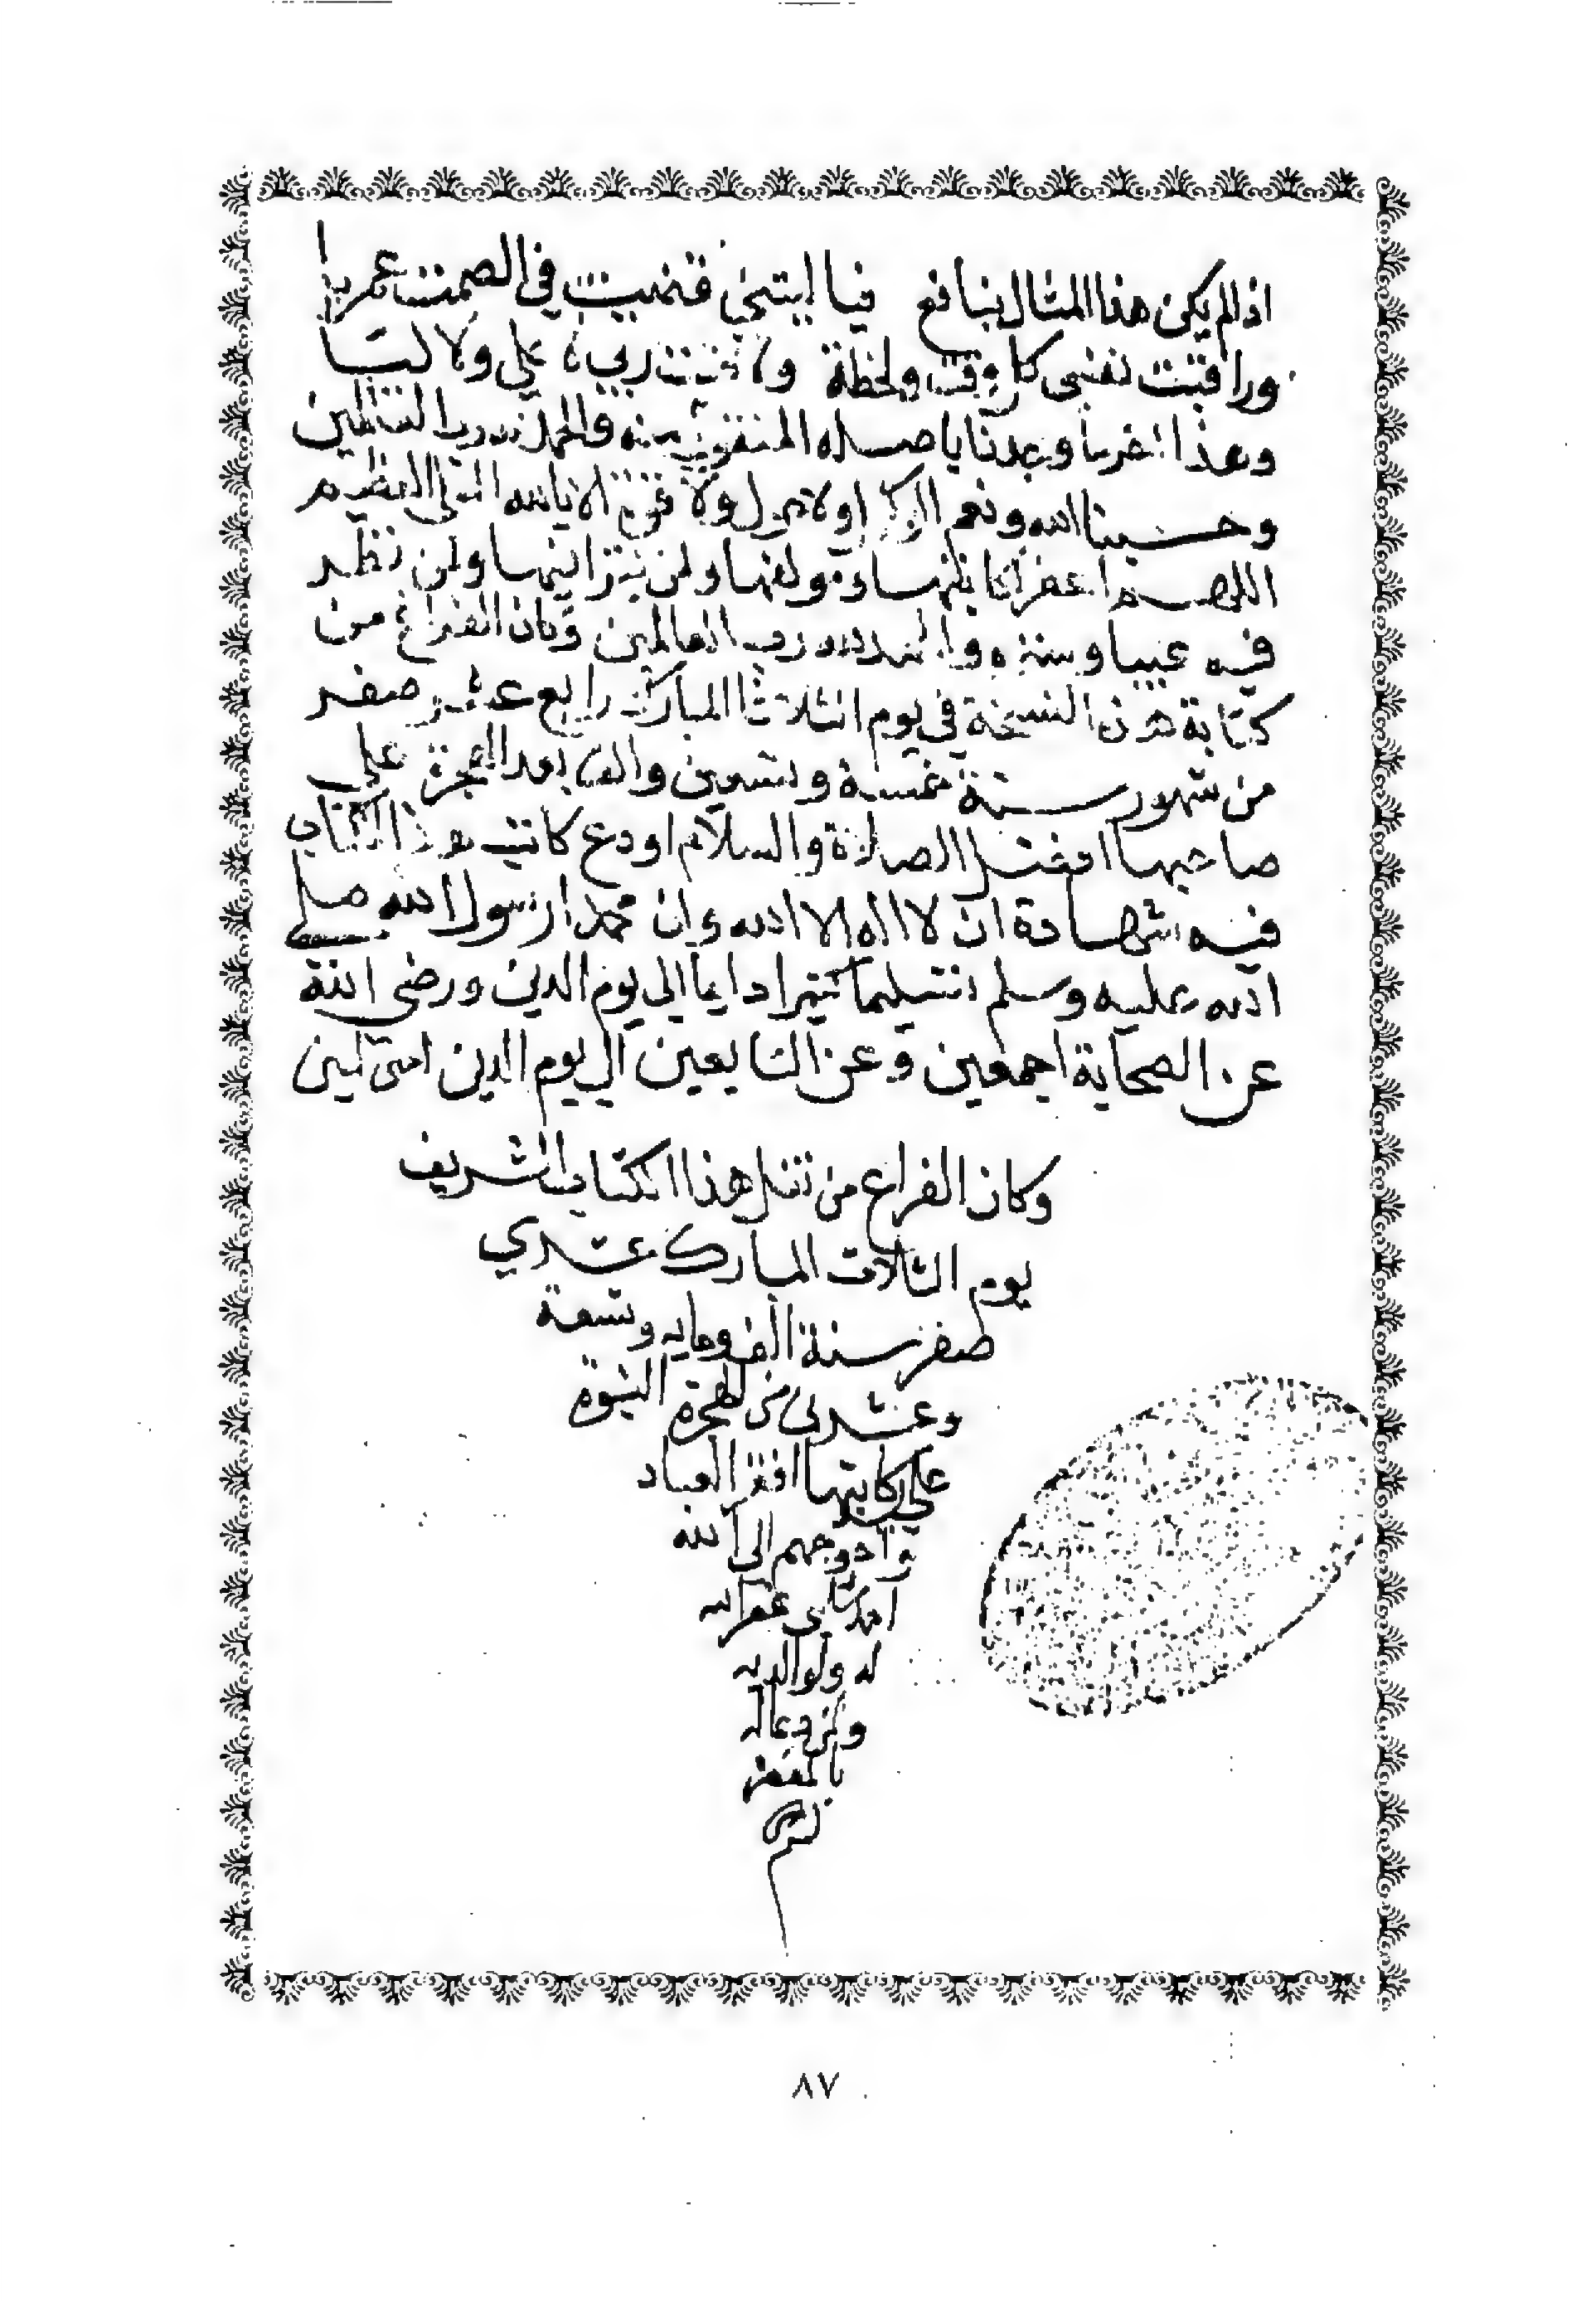 اذا لم يكن هذا المثال بنافع فيا ليتني قضيت في الصمت عمريا
وراقبت نفسي كل وقت ولحظة علي ولا ليا
وهذا اخر ما وعدنا يا والحمد لله رب العالمين
وحسبنا الله ونعم الوكيل ولا حول ولا قوة الا بالله العلي العظيم
اللهم اغفر لكاتبها ومولفها ولمن ولمن نظر
فيه عيبا وستره والحمد لله رب العالمين وكان الفراغ من
كتابة هذه النسخة في يوم الثلاثا المبارك رابع عشر صفر
من شهور سنة خمسة وتسعين والف بعد الهجرة على
صاحبها افضل الصلاة والسلام اودع كاتب هذا الكتاب
فيه شهادة ان لا اله الا الله وان محمدا رسول الله صلي
الله عليه وسلم تسليما كثيرا دايما الى يوم الدين ورضى الله
عن الصحابة اجمعين وعن التابعين الي يوم الدين امين
وكان الفراغ من نقل هذا الكتاب الشريف
يوم الثلاث المبارك عشري
صفر سنة الف ومايه وتسعة
وعشرين من الهجرة النبوة
على كاتبها افقر العباد
واحوجهم الى الله
غفر الله
له ولوالديه
ولمن دعا له
بالمغفرة
٨٧